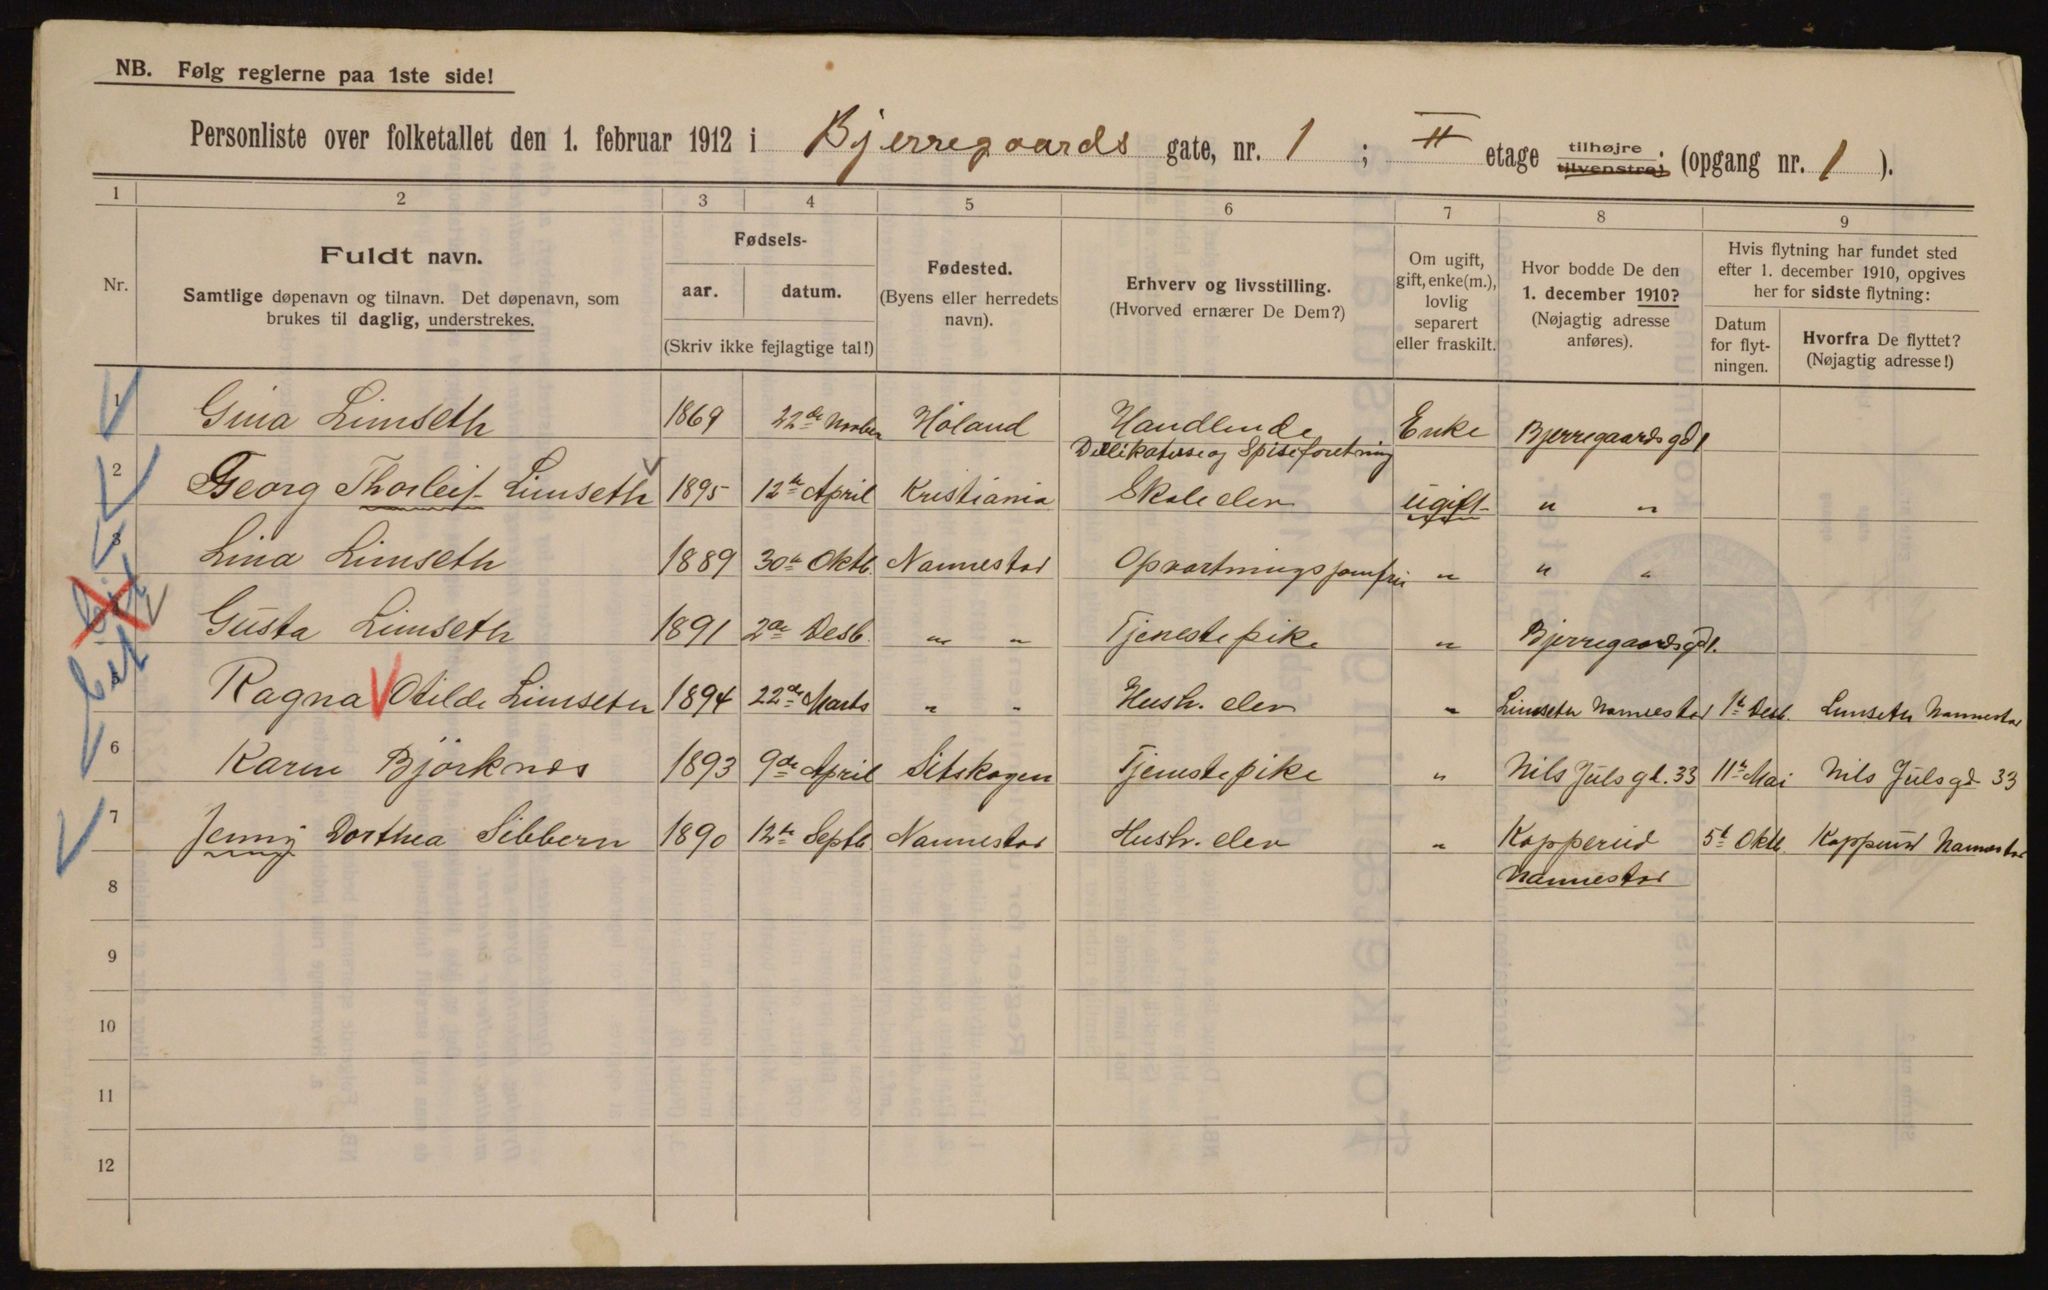 NB. Følg reglerne paa 1ste side!
Personliste over folketallet den 1. februar 1912 i Bjerregaards gate, nr. 1 ; II etage tilhøjre tilvenstre; (opgang nr. 1 ).
1 2 3 4 5 6 7 8 9
Nr.
Fuldt navn.
Samtlige døpenavn og tilnavn. Det døpenavn, som
brukes til daglig, understrekes.
Fødsels-
aar. datum.
(Skriv ikke fejlagtige tal!)
Fødested.
(Byens eller herredets
navn).
Erhverv og livsstilling.
(Hvorved ernærer De Dem?)
Om ugift,
gift, enke(m.),
lovlig
separert
eller fraskilt.
Hvor bodde De den
1. december 1910?
(Nøjagtig adresse
anføres).
Hvis flytning har fundet sted
efter 1. december 1910, opgives
her for sidste flytning:
Datum
for flyt-
ningen.
Hvorfra De flyttet?
(Nøjagtig adresse!)
1 Gina Limseth 1869 22de Novber Høland Handlende Enke Bjerregaards gd 1
Dellikatesse og Spiseforetning
2 Georg Thorleif Limseth 1895 12te April Kristiania Skole elev ugift " "
3 Lina Limseth 1889 30te Oktb. Nannestad Opvartningsjomfru " " "
Gusta Limseth 1891 2de Desb. " " Tjenestepike " Bjerregaardsgd 1.
Ragna Otilde Limseth 1894 22de Marts " " Hush. elev " Limseth Nannestad 1te Desb. Limseth Nannestad
6 Karen Bjørknes 1893 9de April Sitskogen Tjenestepike " Nils Juls gd. 33 11te Mai Nils Juls gd 33
7 Jenny Dorthea Sibbern 1890 12te Septb. Nannestad Hush. elev " Kopperud 5t Oktb. Kopperud Nannestad
8 Nannestad
9
10
11
12